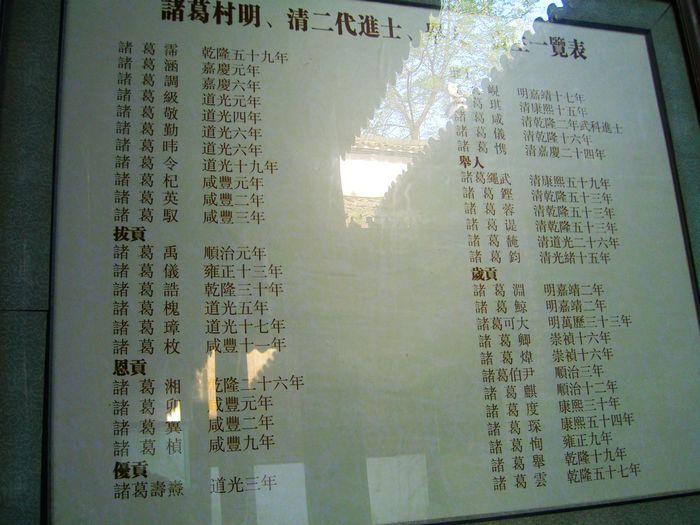 諸葛村明、清二代進士、一覽表
峴 明嘉靖十七年
葛琪 清康熙十五年
葛咸 清乾隆二年武科進士
諸葛儀 清乾隆十六年
諸葛㥞 清嘉慶二十四年
舉人
諸葛繩武 清康熙五十九年
諸葛鏗 清乾隆五十三年
諸葛蓉 清乾隆五十三年
諸葛諟 清乾隆五十三年
諸葛 清道光二十六年
諸葛鈞 清光緒十五年
歲貢
諸葛淵 明嘉靖二年
諸葛鯨 明嘉靖二年
諸葛可大 明萬歷三十三年
諸葛卿 崇禎十六年
諸葛煒 崇禎十六年
諸葛伯尹 順治三年
諸葛麒 順治十二年
諸葛度 康熙三十年
諸葛琛 康熙五十四年
諸葛恂 雍正九年
諸葛舉 乾隆十九年
諸葛雲 乾隆五十七年
諸葛霈 乾隆五十九年
諸葛涵 嘉慶元年
諸葛調 嘉慶六年
諸葛級 道光元年
諸葛敬 道光四年
諸葛勤 道光六年
諸葛 道光六年
諸葛令 道光十九年
諸葛杞 咸豐元年
諸葛英 咸豐二年
諸葛馭 咸豐三年
拔貢
諸葛禹 順治元年
諸葛儀 雍正十三年
諸葛誥 乾隆三十年
諸葛槐 道光五年
諸葛璋 道光十七年
諸葛枚 咸豐十一年
恩貢
諸葛湘 乾隆二十六年
諸葛卯 咸豐元年
諸葛冀 咸豐二年
諸葛楨 咸豐九年
優貢
諸葛壽燾 道光三年